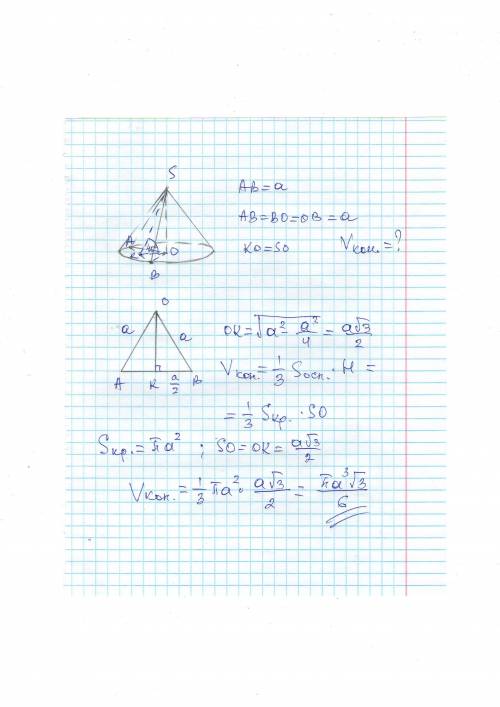 S
AB = a
A
AB = BO = OB = a
K O
KO = SO Vкон. = ?
B
O
a a
OK = √(a² - a²/4) = a√3/2
A K a/2 B
Vкон. = 1/3 Sосн. · H =
= 1/3 Sкр. · SO
Sкр. = πa² ; SO = OK = a√3/2
Vкон. = 1/3 πa² · a√3/2 = πa³√3/6